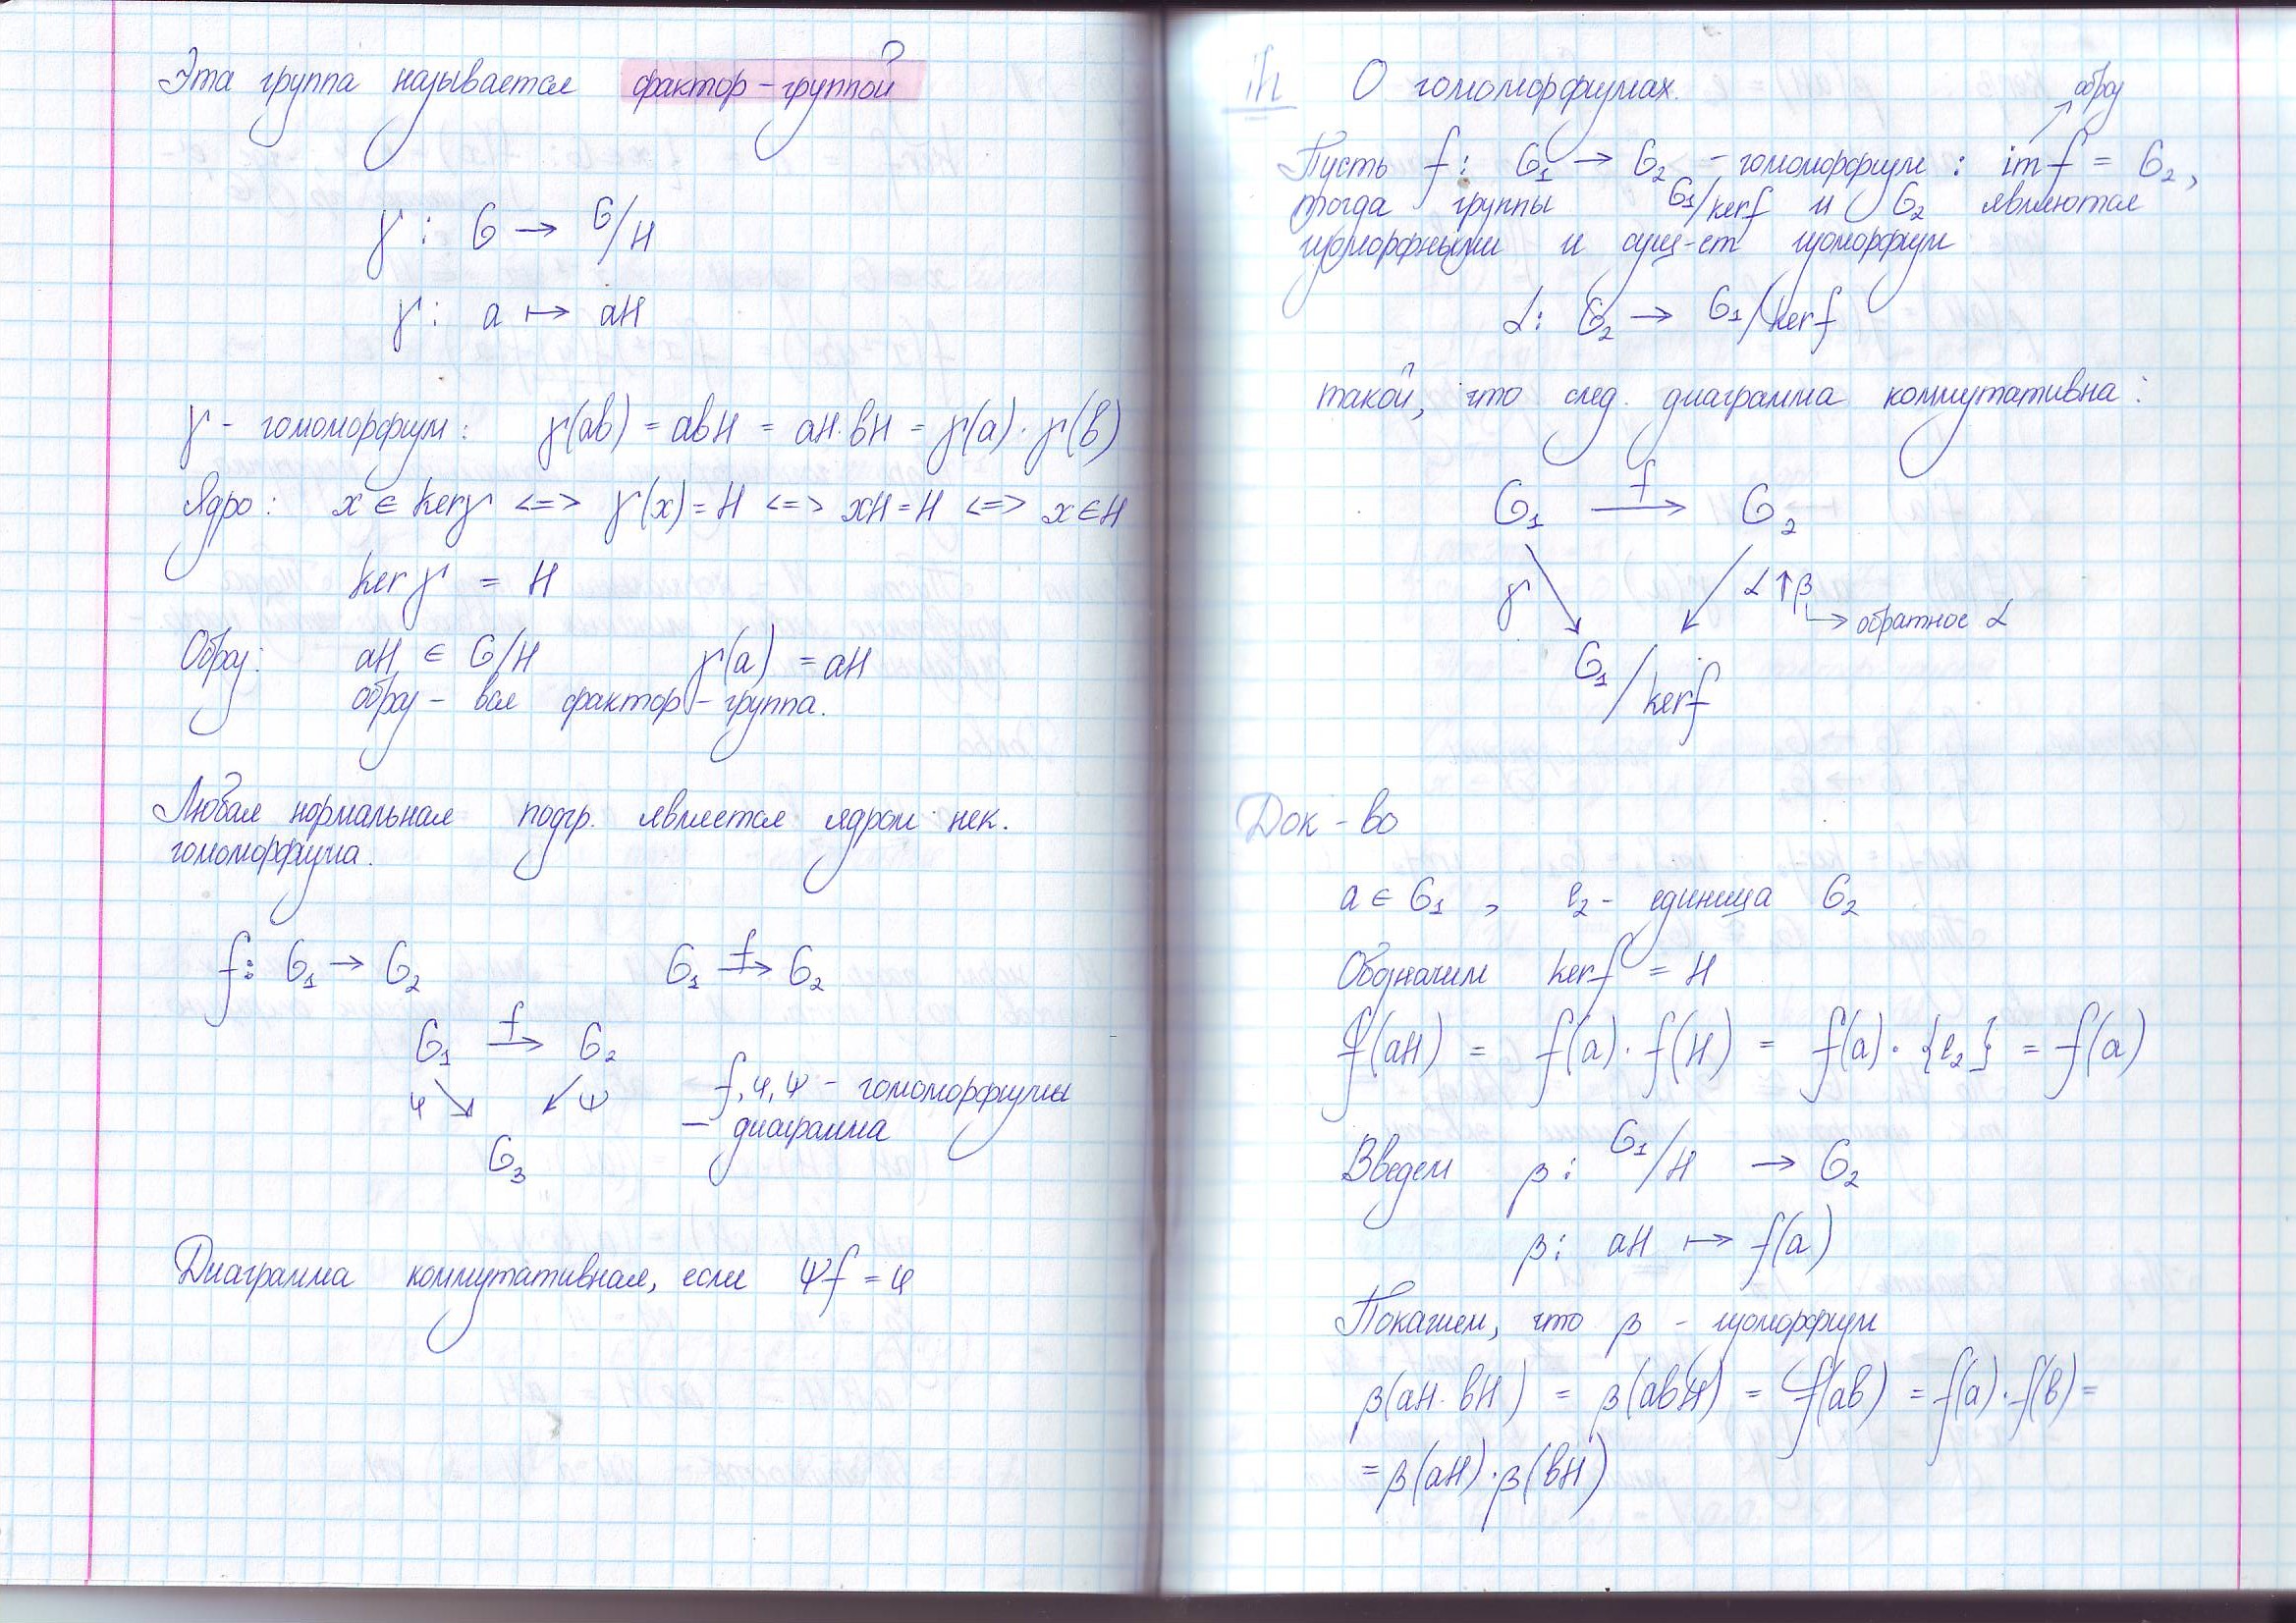 Эта группа называется фактор-группой
γ: G → G/H
γ: a ↦ aH
γ - гомоморфизм: γ(ab) = abH = aH·bH = γ(a)·γ(b)
Ядро: x ∈ kerγ <=> γ(x) = H <=> xH = H <=> x ∈ H
ker γ = H
Образ: aH ∈ G/H γ(a) = aH
образ - вся фактор-группа.
Любая нормальная подгр. является ядром нек.
гомоморфизма.
f: G₁ → G₂ G₁ →f G₂
G₁ →f G₂
φ ↘ ↙ ψ
G₃
f, φ, ψ - гомоморфизмы
- диаграмма
Диаграмма коммутативная, если ψf = φ
th О гомоморфизмах.
образ
Пусть f: G₁ → G₂ - гомоморфизм: im f = G₂,
тогда группы G₁/kerf и G₂ являются
изоморфными и сущ-ет изоморфизм
α: G₂ → G₁/kerf
такой, что след. диаграмма коммутативна:
G₁ →f G₂
γ ↘ ↙ α ↑ β
↳ обратное α
G₁/kerf
Док-во
a ∈ G₁, e₂ - единица G₂
Обозначим kerf = H
f(aH) = f(a)·f(H) = f(a)·{e₂} = f(a)
Введем β: G₁/H → G₂
β: aH ↦ f(a)
Покажем, что β - изоморфизм
β(aH·bH) = β(abH) = f(ab) = f(a)·f(b) =
= β(aH)·β(bH)